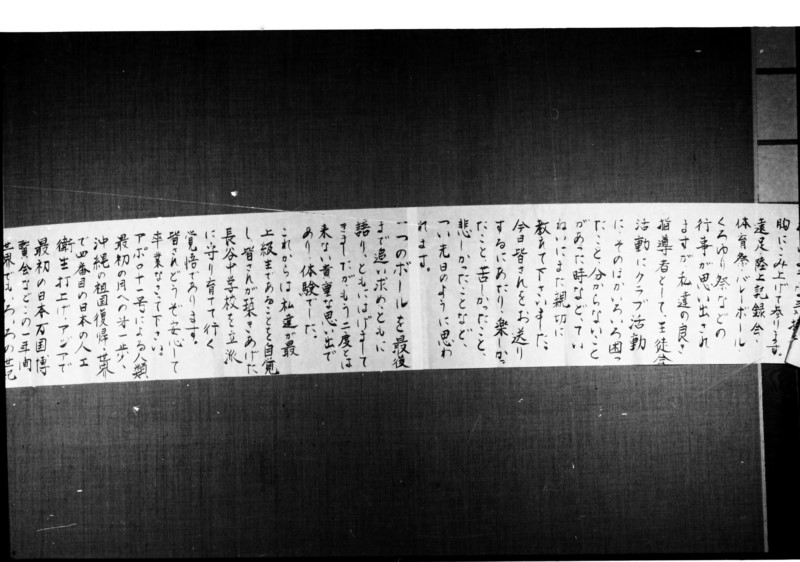 胸にこみ上げて参ります。
遠足、陸上記録会
体育祭、バレーボール、
くろゆり祭などの
行事が思い出され
ますが、私達の良き
指導者として、生徒会
活動にクラブ活動
に、そのほかいろいろ困っ
たこと、分からないこと
があった時など、てい
ねいにまた親切に
教えて下さいました。
今日皆さんをお送り
するにあたり、楽かっ
たこと、苦しかったこと、
悲しかったことなど、
つい先日のように思わ
れます。
一つのボールを最後
まで追い求め、ともに
語り、ともにはげまして
きましたが、もう二度とは
来ない貴重な思い出で
あり、体験でした。
これからは、私達が最
上級生であることを自覚
し、皆さんが築きあげた
長谷中学校を立派
に守り育てて行く
覚悟であります。
皆さんどうぞ安心して
卒業なさって下さい。
アポロ十一号による人類
最初の月への第一歩、
沖縄の祖国復帰、世界
で四番目の日本の人工
衛生打上げ、アジアで
最初の日本万国博
覧会などこの一年間
世界はいろいろの世紀